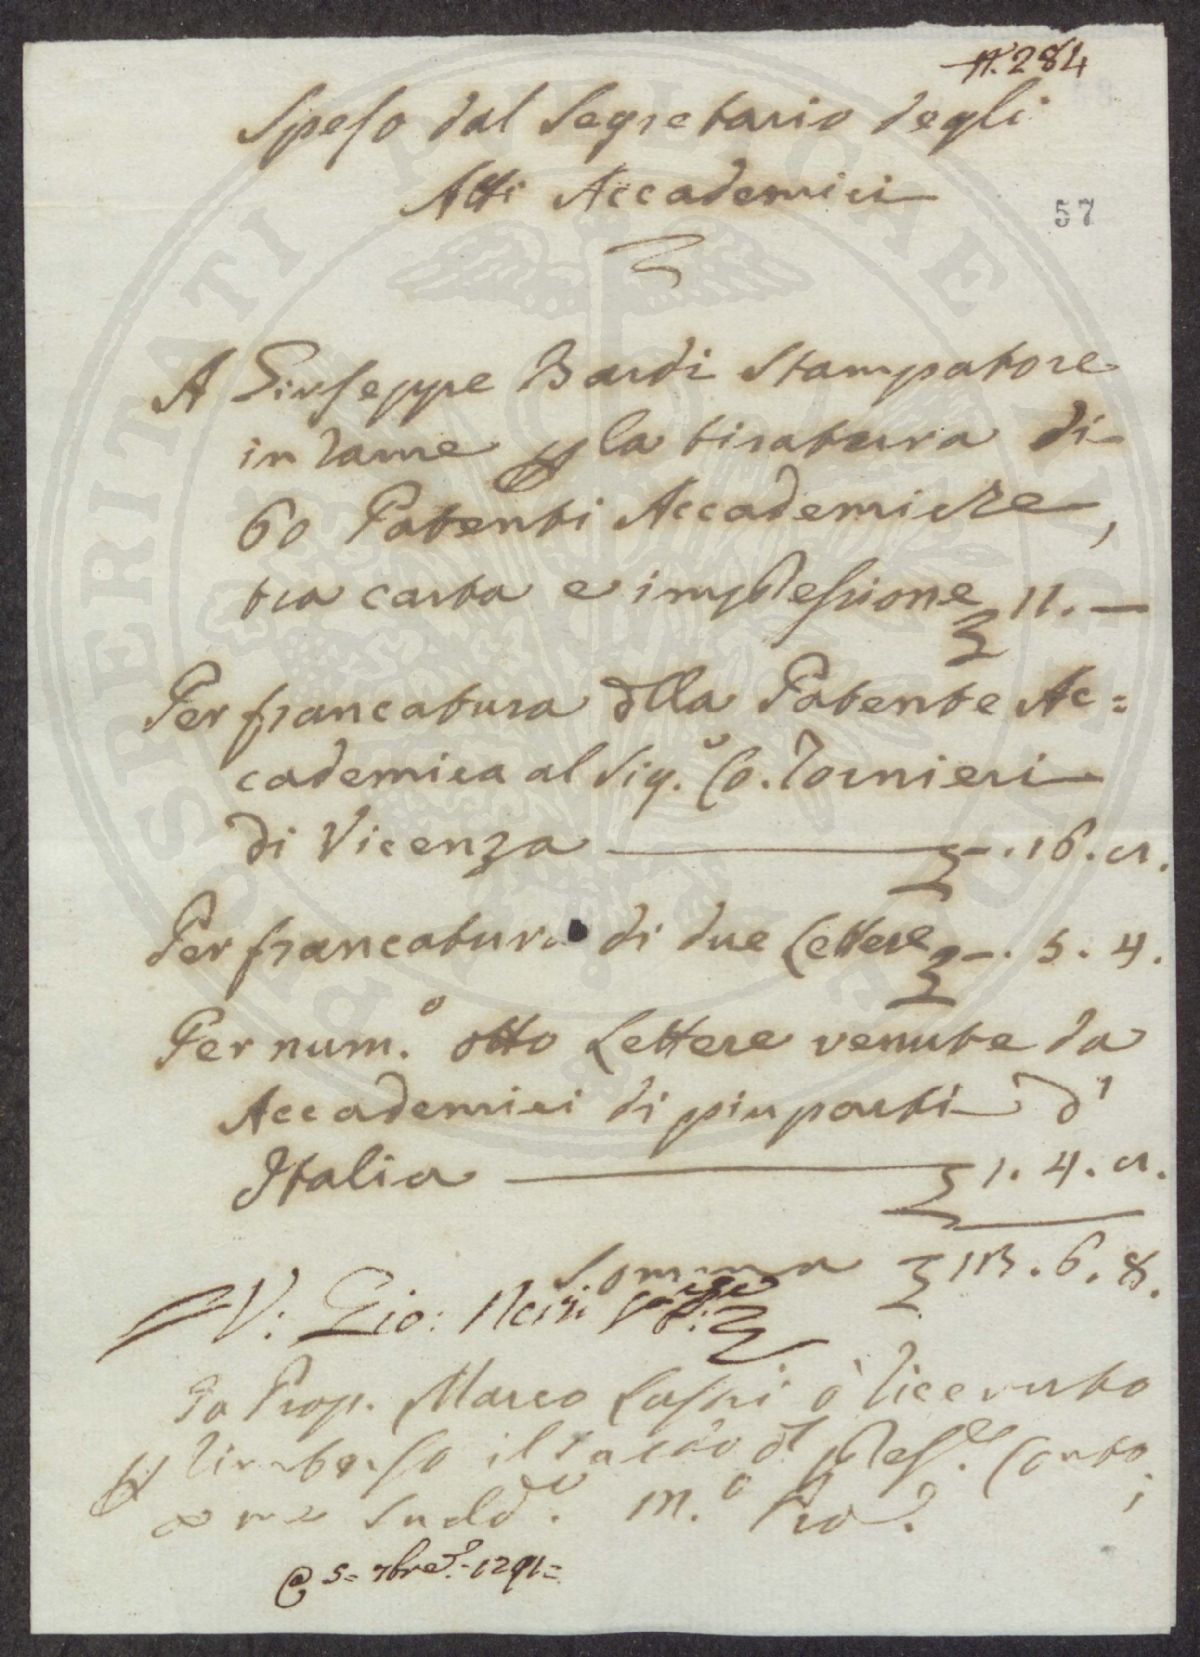 N. 284
Speso dal Segretario degli
Atti Accademici
57
A Giuseppe Bardi Stampatore
in Rame p la tiratura di
60 Patenti Accademiche,
tra carta e impressione £ 11. —
Per francatura dlla Patente Ac=
cademica al Sig.r Co. Tornieri
di Vicenza £ –. 16. a.
Per francatura di due Lettere £ –. 5. 4.
Per num.o otto Lettere venute da
Accademici di piu parti d'
Italia £ 1. 4. a.
Somma £ 13. 6. 8.
V: Gio: Neri
Io Prop. Marco Lastri ò Ricevuto
p Rimborso il saldo dl pres.e Conto
Sudd.o m.o pro.a
@ 5= 7bre 1791=
PROSPERITATI PVBLICAE AVGENDAE